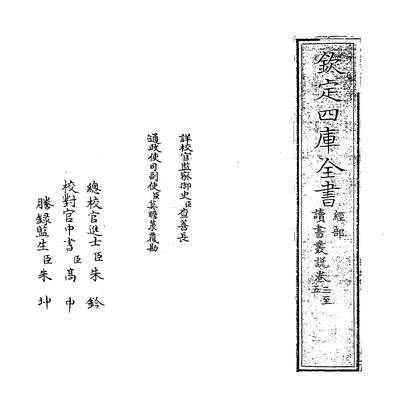 欽定四庫全書
經部
讀書叢說卷三至五
詳校官監察御史臣曹善長
通政使司副使臣莫瞻菉覆勘
總校官進士臣朱鈐
校對官中書臣高中
謄錄監生臣朱坤